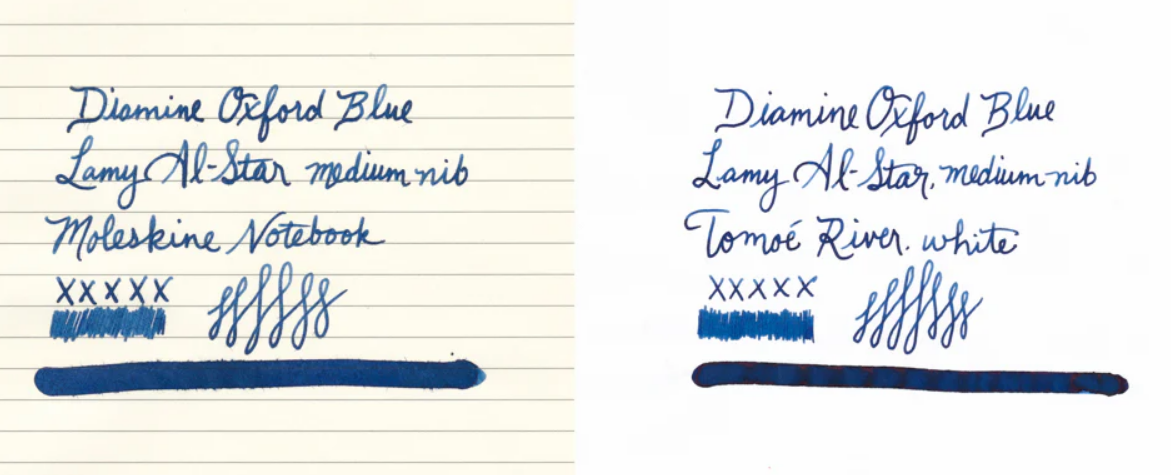 Diamine Oxford Blue
Lamy Al-Star medium nib
Moleskine Notebook
XXXXX
Diamine Oxford Blue
Lamy Al-Star, medium nib
Tomoé River. white
XXXXX